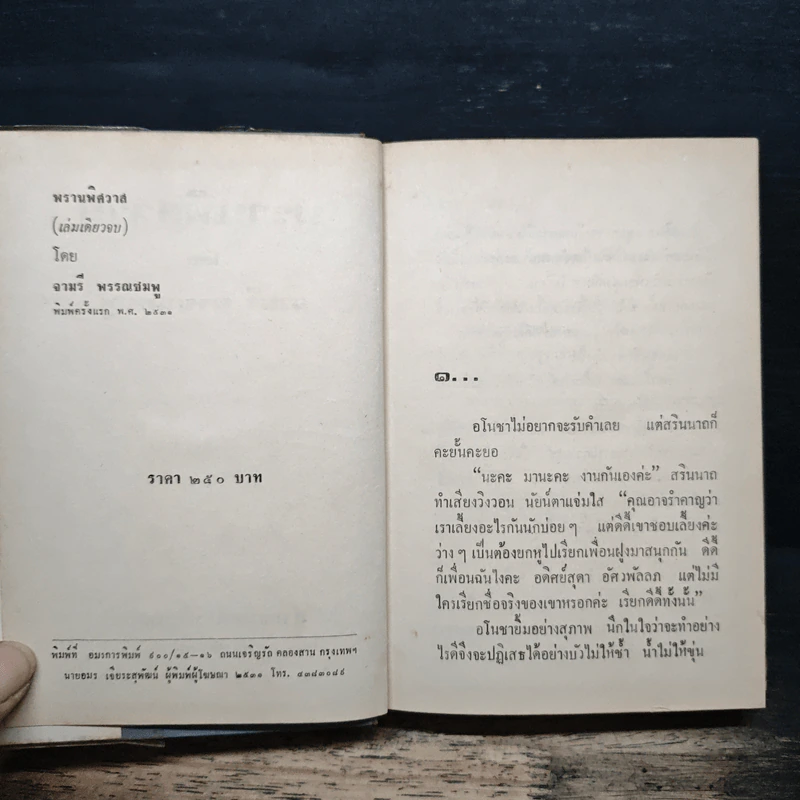 พรานพิศวาส
(เล่มเดียวจบ)
โดย
จามรี พรรณชมพู
พิมพ์ครั้งแรก พ.ศ. ๒๕๓๑
ราคา ๒๕๐ บาท
พิมพ์ที่ อมรการพิมพ์ ๕๐๐/๑๕-๑๖ ถนนเจริญรัถ คลองสาน กรุงเทพฯ
นายอมร เจียระสุพัฒน์ ผู้พิมพ์ผู้โฆษณา ๒๕๓๑ โทร. ๔๓๘๓๐๘๕
๑...
อโนชาไม่อยากจะรับคำเลย แต่สรินนาถก็
คะยั้นคะยอ
“นะคะ มานะคะ งานกันเองค่ะ” สรินนาถ
ทำเสียงวิงวอน นัยน์ตาแจ่มใส “คุณอาจรำคาญว่า
เราเลี้ยงอะไรกันนักบ่อยๆ แต่ดีดี้เขาชอบเลี้ยงค่ะ
ว่างๆ เป็นต้องยกหูไปเรียกเพื่อนฝูงมาสนุกกัน ดีดี้
ก็เพื่อนฉันไงคะ อดิศัยสุดา อัศวพัลลภ แต่ไม่มี
ใครเรียกชื่อจริงของเขาหรอกค่ะ เรียกดีดี้ทั้งนั้น”
อโนชายิ้มอย่างสุภาพ นึกในใจว่าจะทำอย่าง
ไรดีจึงจะปฏิเสธได้อย่างบัวไม่ให้ช้ำ น้ำไม่ให้ขุ่น